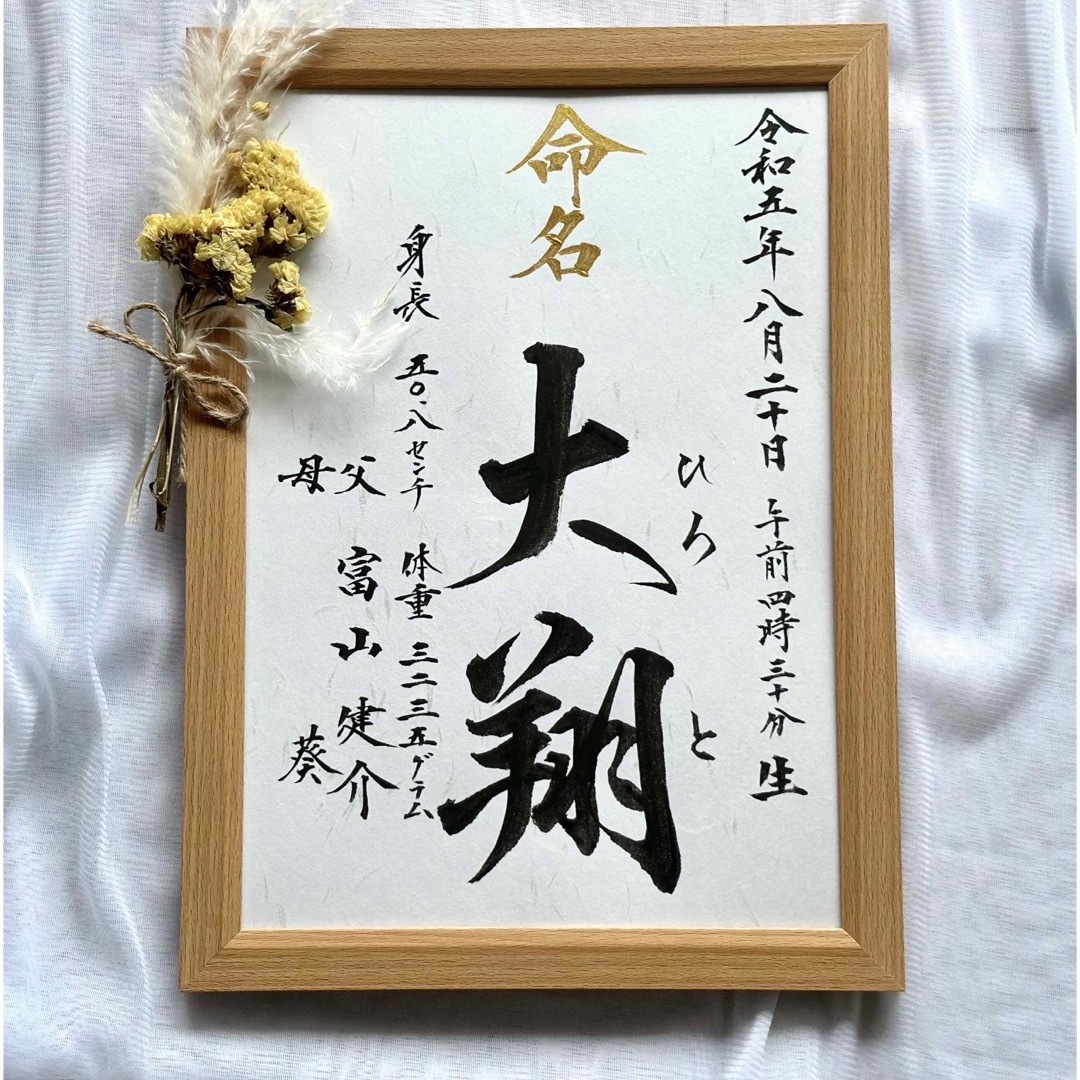 令和五年八月二十日 午前四時三十分 生
命名
ひろと
大翔
身長 五〇.八センチ 体重 三二三五グラム
父 富山 健介
母 葵